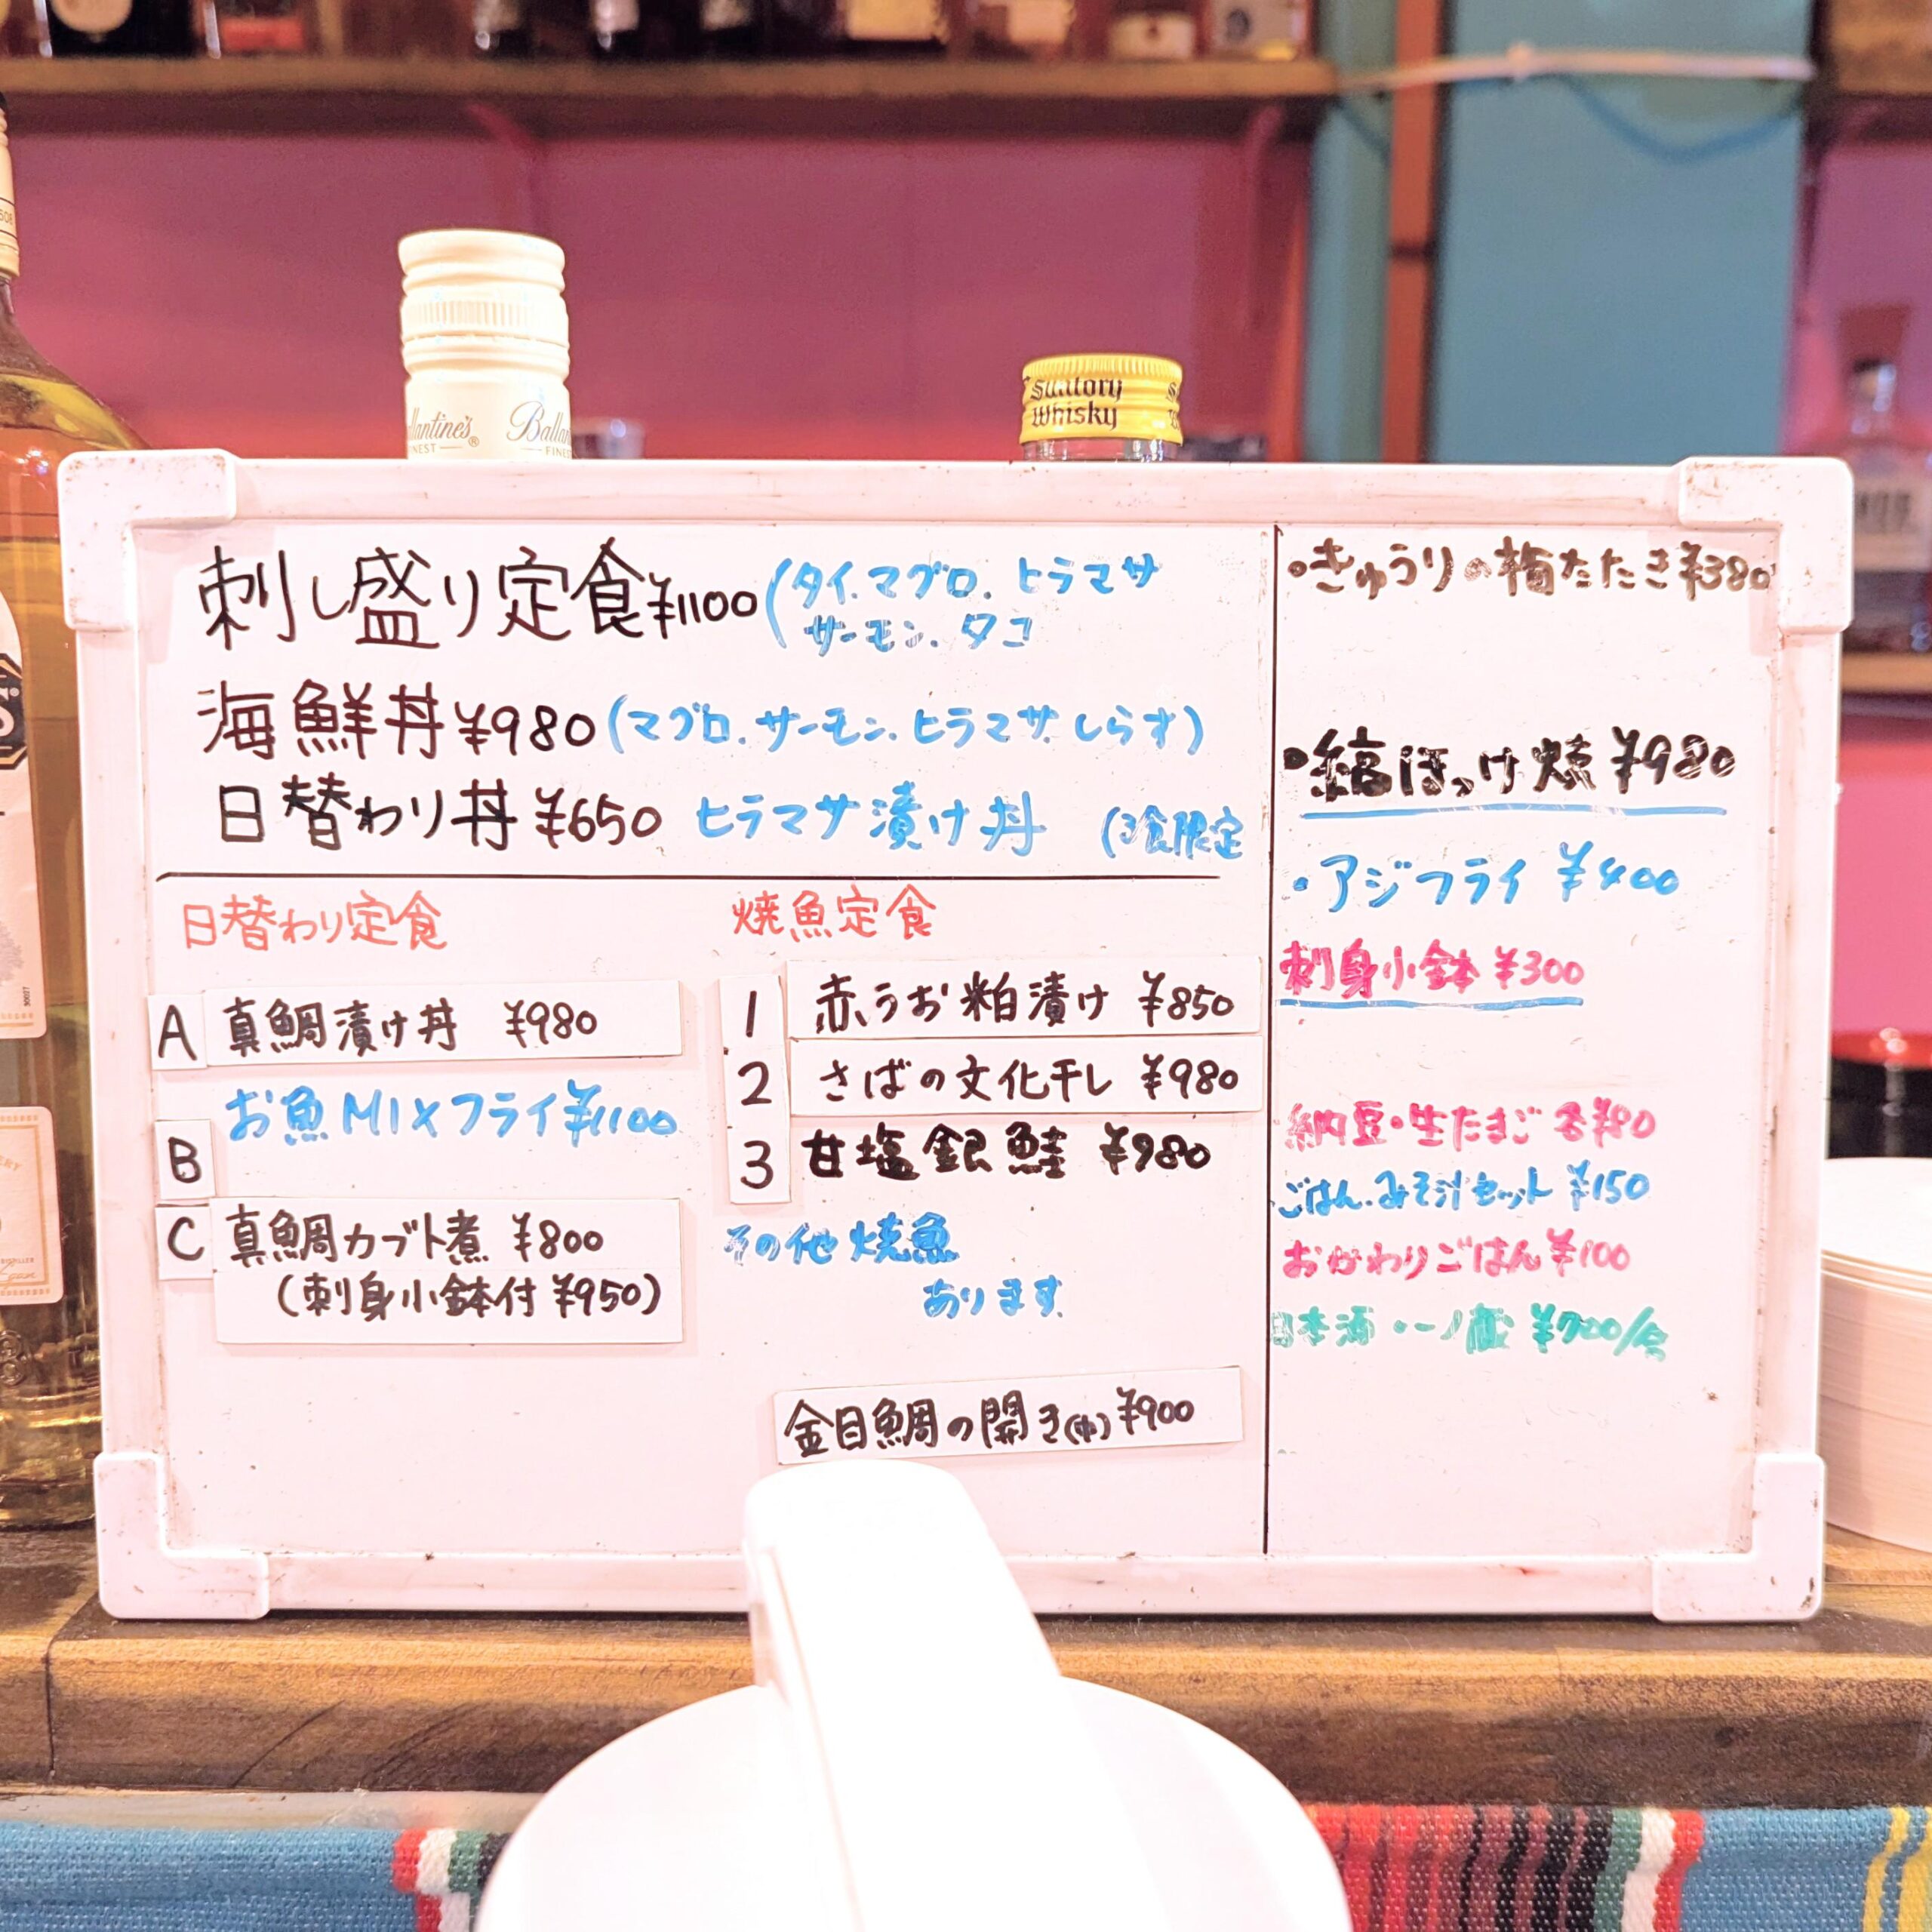 Ballantine's
FINEST
Suntory
Whisky
刺し盛り定食¥1100(タイ.マグロ.ヒラマサ
サーモン.タコ
海鮮丼¥980(マグロ.サーモン.ヒラマサ.しらす)
日替わり丼¥650 ヒラマサ漬け丼 (3食限定
日替わり定食
A 真鯛漬け丼 ¥980
B お魚MIXフライ¥1100
C 真鯛カブト煮 ¥800
(刺身小鉢付¥950)
焼魚定食
1 赤うお粕漬け ¥850
2 さばの文化干し ¥980
3 甘塩銀鮭 ¥980
その他焼魚
あります
金目鯛の開き(中)¥900
・きゅうりの梅たたき¥380
・縞ほっけ焼¥980
・アジフライ ¥400
刺身小鉢¥300
納豆・生たまご 各¥80
ごはん.みそ汁セット ¥150
おかわりごはん¥100
日本酒・一ノ蔵 ¥700/合